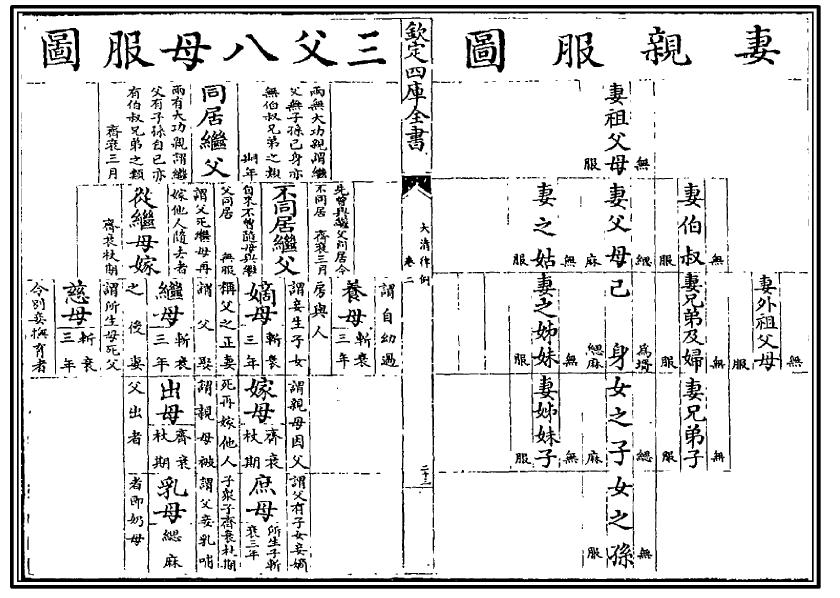 妻親服圖
妻祖父母
無服
妻伯叔
無服
妻父母
緦麻
妻之姑
無服
妻外祖父母
無服
妻兄弟及婦
無服
己身
為壻緦麻
妻之姊妹
無服
妻兄弟子
無服
女之子
緦麻
妻姊妹子
無服
女之孫
無服
欽定四庫全書
大清律例
卷二
二十二
三父八母服圖
兩無大功親謂繼
父無子孫己身亦
無伯叔兄弟之類
期年
同居繼父
兩有大功親謂繼
父有子孫自己亦
有伯叔兄弟之類
齊衰三月
先曾與繼父同居今
不同居 齊衰三月
不同居繼父
自來不曾隨母與繼
父同居 無服
謂父死繼母再
嫁他人隨去者
從繼母嫁
齊衰杖期
謂自幼過
養母斬衰三年
房與人
謂妾生子女
嫡母斬衰三年
稱父之正妻
謂父娶
繼母斬衰三年
之後妻
謂所生母死父
慈母斬衰三年
令別妾撫育者
謂親母因父
嫁母齊衰杖期
死再嫁他人
謂親母被
出母齊衰杖期
父出者
謂父有子女妾嫡
庶母所生子斬衰三年
子衆子齊衰杖期
謂父妾乳哺
乳母緦麻
者即奶母